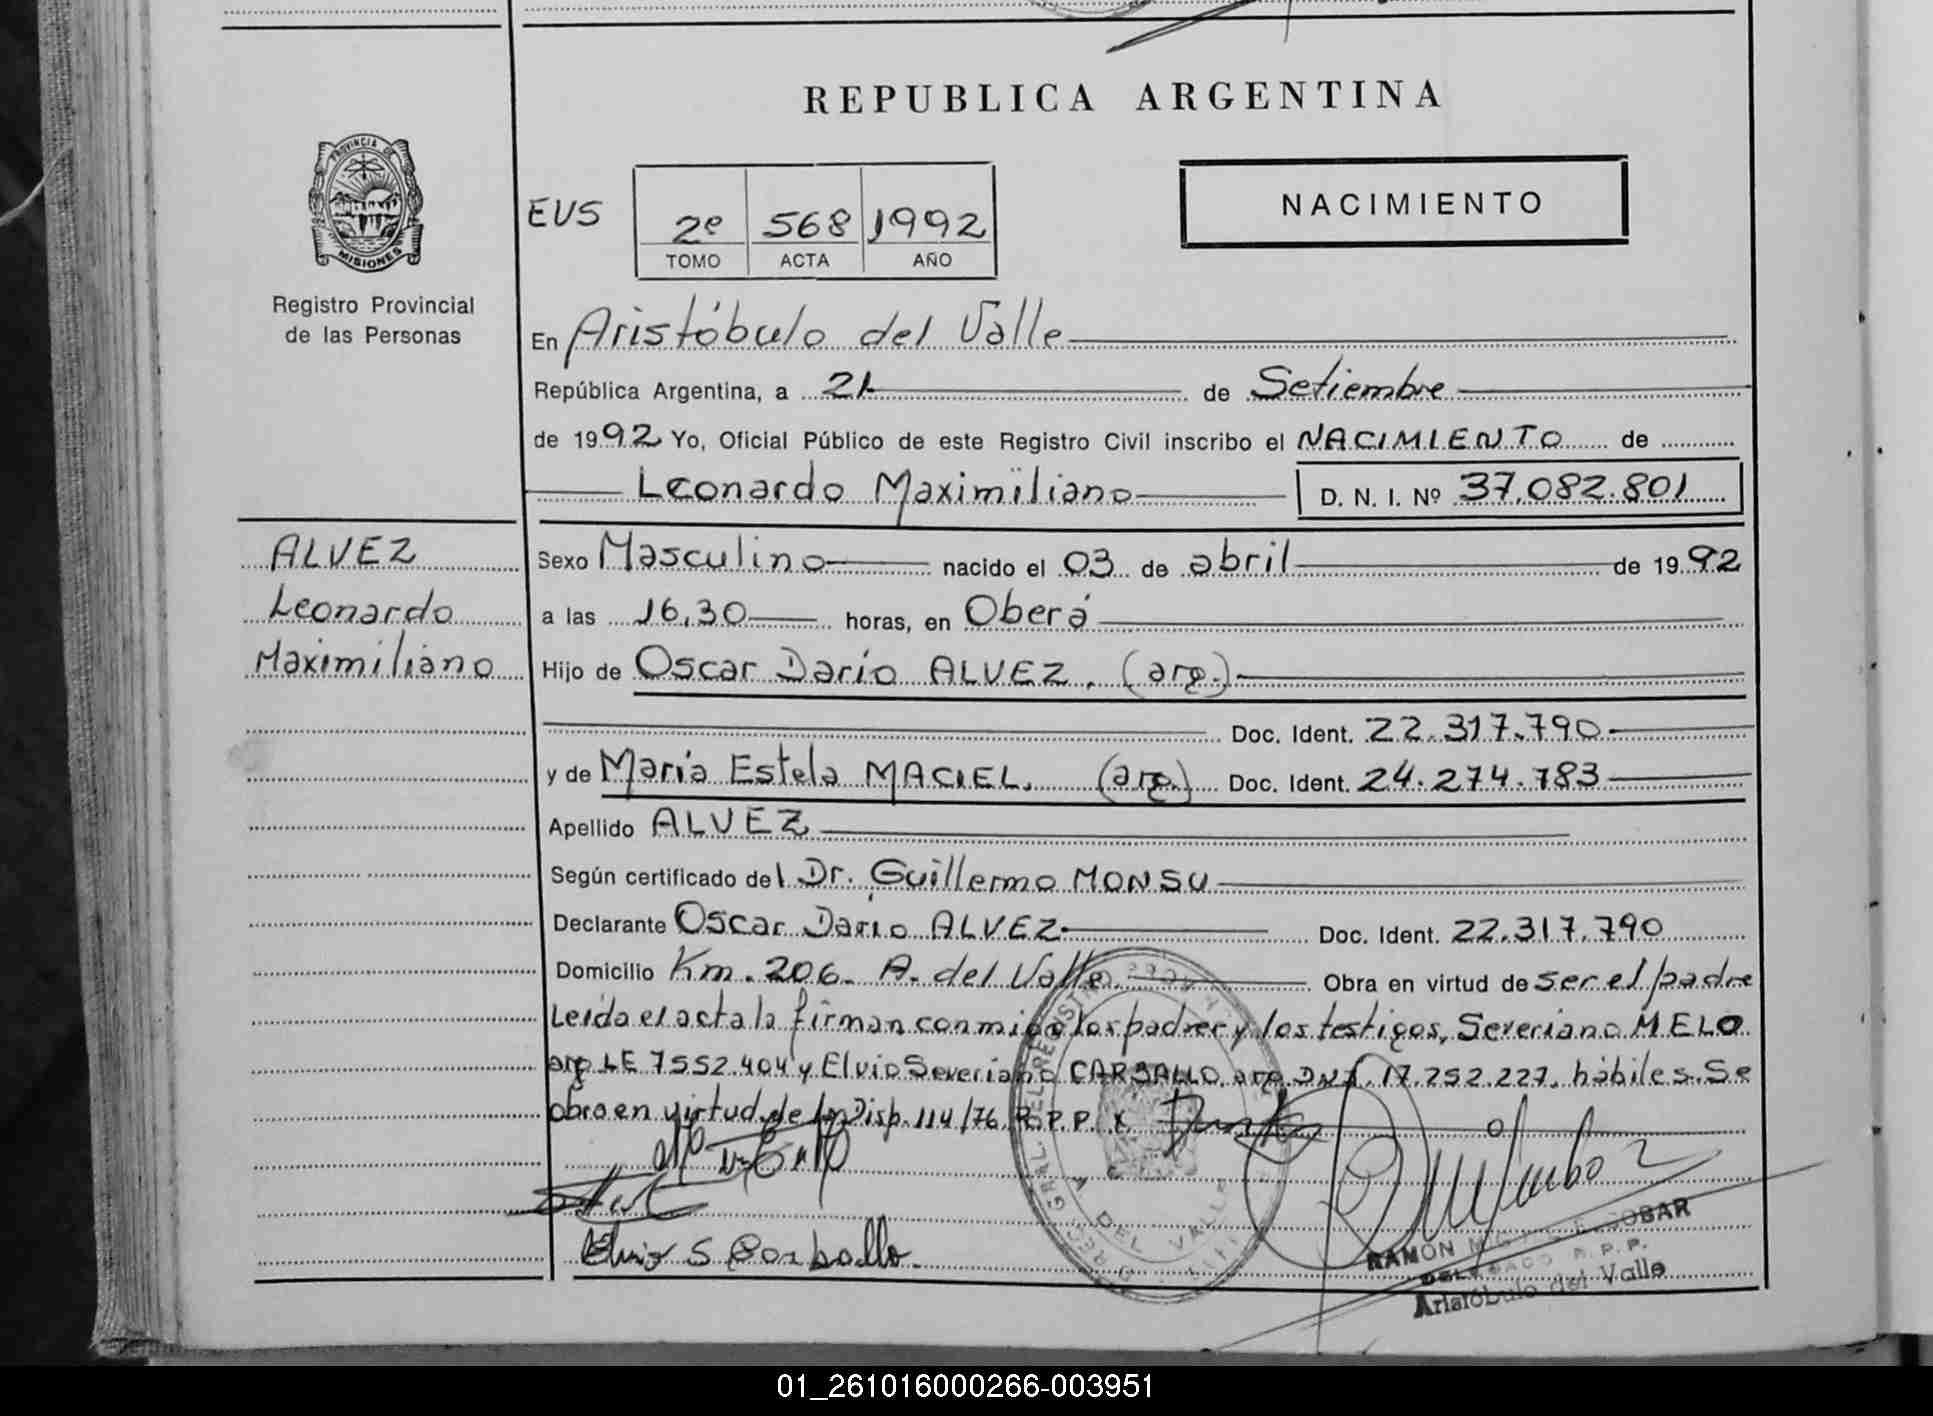 REPUBLICA ARGENTINA
PROVINCIA DE
MISIONES
Registro Provincial
de las Personas
EUS
2º 568 1992
TOMO ACTA AÑO
NACIMIENTO
En Aristóbulo del Valle
República Argentina, a 21 de Setiembre
de 1992 Yo, Oficial Público de este Registro Civil inscribo el NACIMIENTO de
Leonardo Maximiliano D. N. I. Nº 37.082.801
ALVEZ
Leonardo
Maximiliano
Sexo Masculino nacido el 03 de abril de 1992
a las 16,30 horas, en Oberá
Hijo de Oscar Dario ALVEZ. (arg.)
Doc. Ident. 22.317.790
y de Maria Estela MACIEL. (arg.) Doc. Ident. 24.274.783
Apellido ALVEZ
Según certificado del Dr. Guillermo MONSU
Declarante Oscar Dario ALVEZ Doc. Ident. 22.317.790
Domicilio Km. 206. A. del Valle Obra en virtud de ser el padre
Leida el acta la firman conmigo los padres y los testigos, Severiano MELO
arg LE 7552.404 y Elvio Severiano CARBALLO, arg. DNI. 17.252.227. hábiles. Se
obra en virtud de la Disp. 114/76 R.P.P.
Elvio S Carballo.
DEL VALLE
RAMÓN ESCOBAR
DELEGADO R. P. P.
Aristóbulo del Valle
01_261016000266-003951